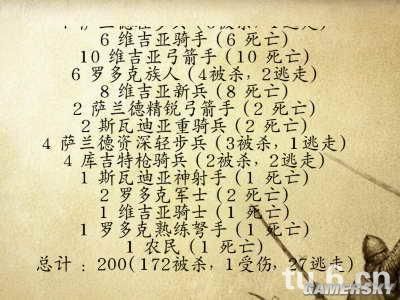 6 维吉亚骑手(6 死亡)
10 维吉亚弓箭手(10 死亡)
6 罗多克族人(4被杀，2逃走)
8 维吉亚新兵(8 死亡)
2 萨兰德精锐弓箭手(2 死亡)
2 斯瓦迪亚重骑兵(2 死亡)
4 萨兰德资深轻步兵(3被杀，1逃走)
4 库吉特枪骑兵(2被杀，2逃走)
1 斯瓦迪亚神射手(1 死亡)
2 罗多克军士(2 死亡)
1 维吉亚骑士(1 死亡)
1 罗多克熟练弩手(1 死亡)
1 农民(1 死亡)
总计：200(172被杀，1受伤，27逃走)
tu.6.cn
GAMERSKY